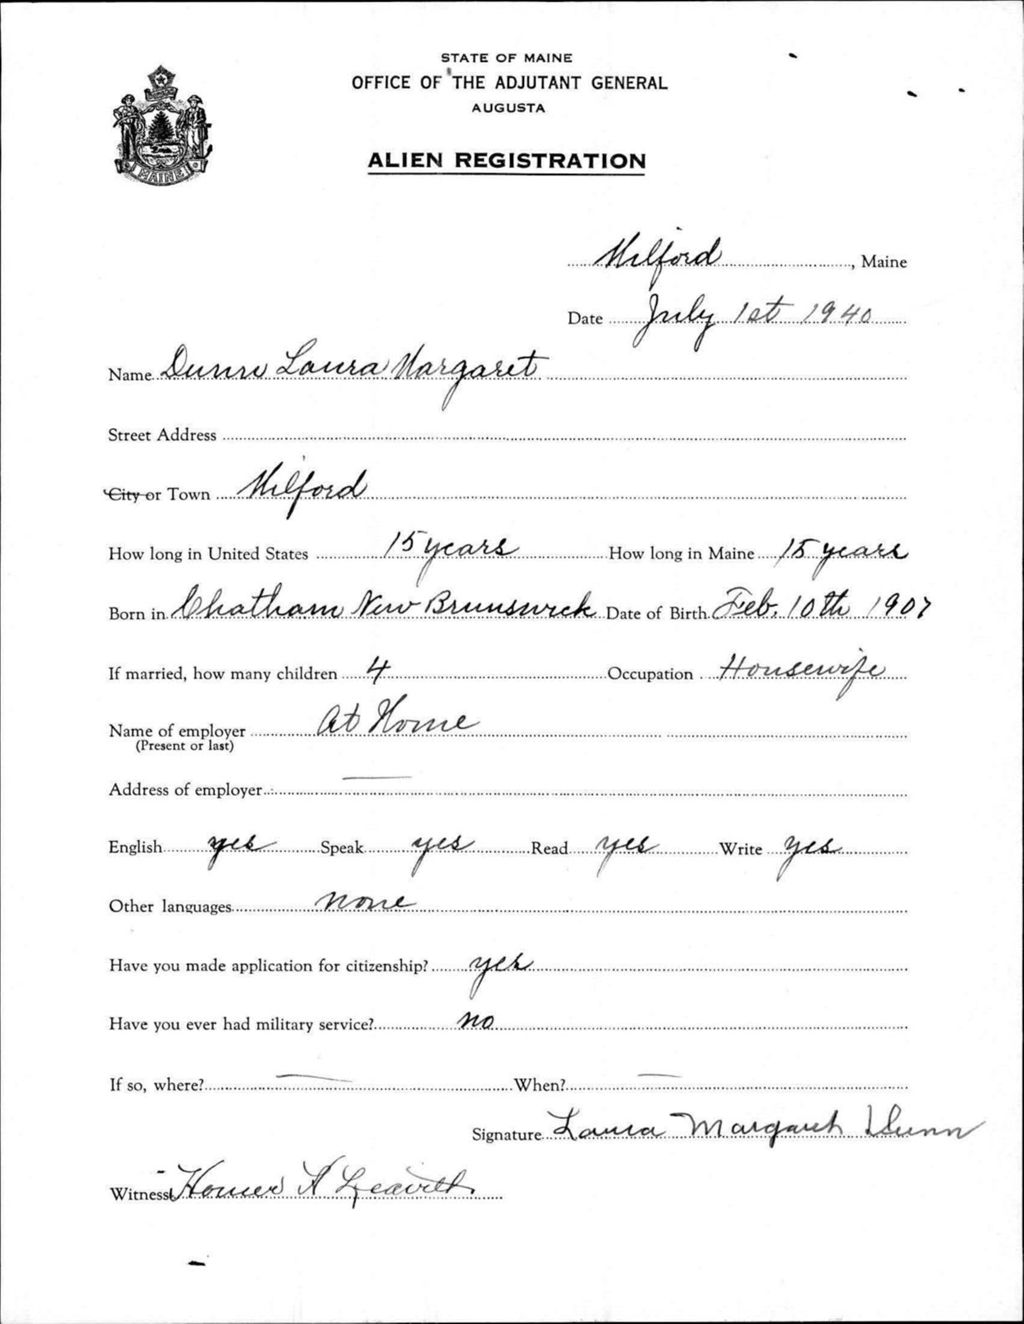 STATE OF MAINE
OFFICE OF THE ADJUTANT GENERAL
AUGUSTA
ALIEN REGISTRATION
MAINE
Milford, Maine
Date July 1st 1940
Name Dunn Laura Margaret
Street Address
City or Town Milford
How long in United States 15 years How long in Maine 15 years
Born in Chatham New Brunswick Date of Birth Feb. 10th 1907
If married, how many children 4 Occupation Housewife
Name of employer At Home
(Present or last)
Address of employer —
English yes Speak yes Read yes Write yes
Other languages none
Have you made application for citizenship? yes
Have you ever had military service? no
If so, where? — When? —
Signature Laura Margaret Dunn
Witness Homer A Leavitt